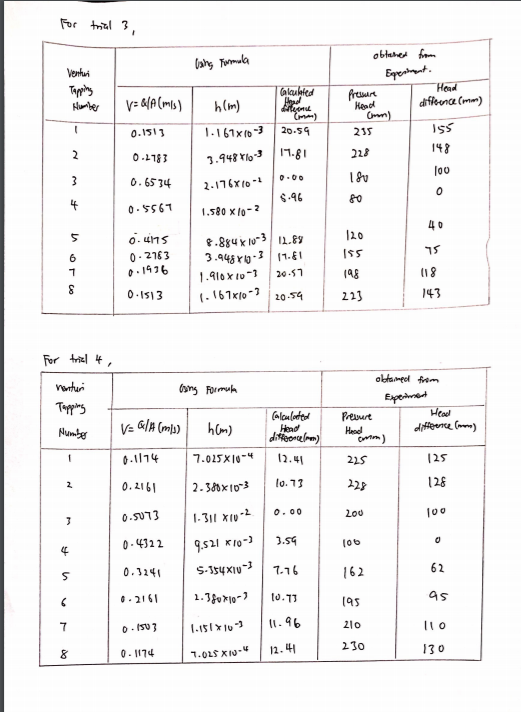 For trial 3,
Venturi Tapping Number | Using Formula | obtained from Experiment.
V= Q/A (m/s) | h(m) | Calculated Head difference (mm) | Pressure Head (mm) | Head difference (mm)
1 | 0.1513 | 1.167x10-3 | 20.59 | 235 | 155
2 | 0.2783 | 3.948x10-3 | 17.81 | 228 | 148
3 | 0.6534 | 2.176x10-2 | 0.00 | 180 | 100
4 | 0.5567 | 1.580 x10-2 | 5.96 | 80 | 0
5 | 0.4175 | 8.884x10-3 | 12.88 | 120 | 40
6 | 0.2783 | 3.948x10-3 | 17.81 | 155 | 75
7 | 0.1936 | 1.910x10-3 | 20.57 | 198 | 118
8 | 0.1513 | 1.167x10-3 | 20.59 | 223 | 143
For trial 4,
Venturi Tapping Number | Using Formula | obtained from Experiment
V= Q/A (m/s) | h(m) | Calculated Head difference(mm) | Pressure Head (mm) | Head difference (mm)
1 | 0.1174 | 7.025x10-4 | 12.41 | 225 | 125
2 | 0.2161 | 2.380x10-3 | 10.73 | 228 | 128
3 | 0.5073 | 1.311 x10-2 | 0.00 | 200 | 100
4 | 0.4322 | 9.521 x10-3 | 3.59 | 100 | 0
5 | 0.3241 | 5.354x10-3 | 7.76 | 162 | 62
6 | 0.2161 | 2.380x10-3 | 10.73 | 195 | 95
7 | 0.1503 | 1.151x10-3 | 11.96 | 210 | 110
8 | 0.1174 | 7.025x10-4 | 12.41 | 230 | 130